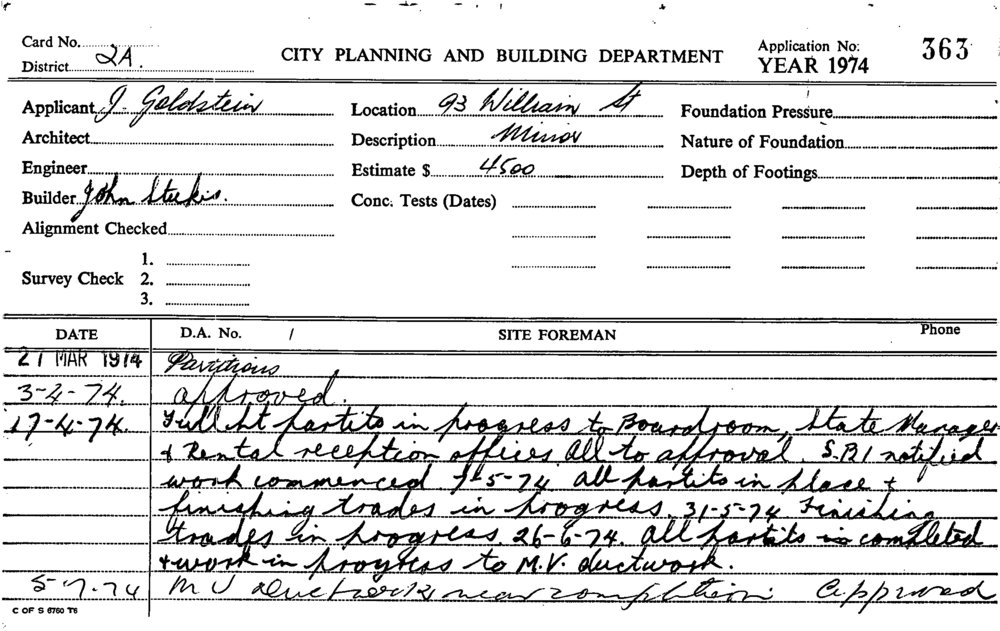 Card No.
District 2A.
CITY PLANNING AND BUILDING DEPARTMENT
Application No:
YEAR 1974
363
Applicant J. Goldstein
Location 93 William St
Foundation Pressure
Architect
Description Minor
Nature of Foundation
Engineer
Estimate $ 4500
Depth of Footings
Builder John
Conc. Tests (Dates)
Alignment Checked
Survey Check
1.
2.
3.
DATE D.A. No. / SITE FOREMAN Phone
21 MAR 1974 Partitions
3-4-74. approved.
17-4-74. Full ht partits in progress to Boardroom, State Manager
& Rental reception offices. All to approval. S.B.I notified
work commenced 7-5-74 All partits in place +
finishing trades in progress. 31-5-74 Finishing
trades in progress. 26-6-74. All partits completed
+ work in progress to M.V. ductwork.
5-7.74 M V ductwork near completion. Approved
C OF S 6760 T6